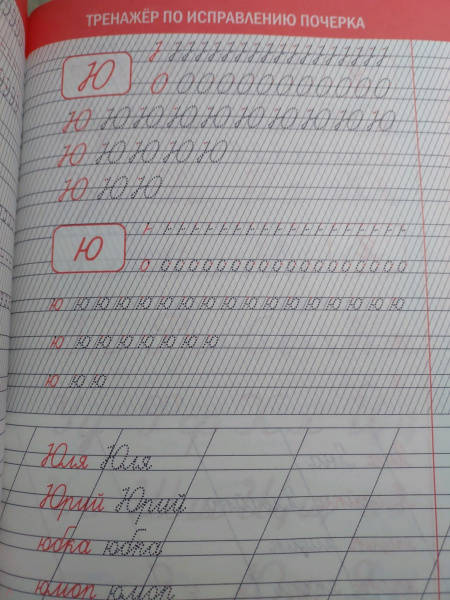 ТРЕНАЖЁР ПО ИСПРАВЛЕНИЮ ПОЧЕРКА
Ю
О О О О О О О О О О О О О
Ю Ю Ю Ю Ю Ю Ю Ю Ю Ю
Ю Ю Ю Ю Ю
Ю Ю Ю
ю
о о о о о о о о о о о о о о о о о о о
ю ю ю ю ю ю ю ю ю ю ю ю ю ю ю ю ю
ю ю ю ю ю ю ю ю
ю ю ю
Юля Юля
Юрий Юрий
юбка юбка
юмор юмор